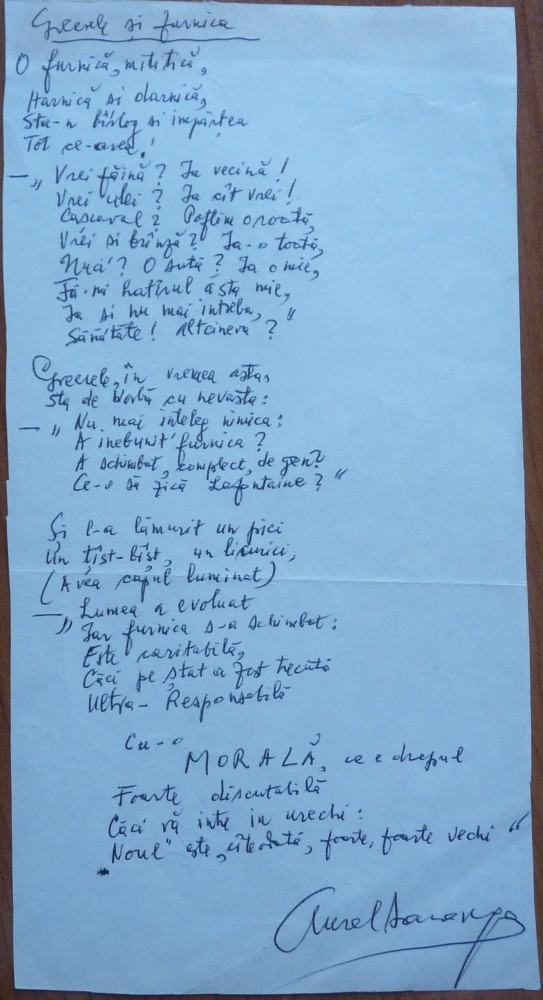 Greerele și furnica
O furnică, mititică,
Harnică si darnică,
Sta-n bîrlog si împărțea
Tot ce-avea!
— „Vrei făină? Ia vecină!
Vrei ulei? Ia cît vrei!
Cașcaval? Poftim o roată,
Vrei si brînză? Ia-o toată,
Nuci? O sută? Ia o mie,
Fă-mi hatîrul ăsta mie,
Ia si nu mai întreba,
Sănătate! Altcineva?"
Greerele, în vremea asta,
Sta de vorbă cu nevasta:
— „Nu mai înțeleg nimica:
A înebunit furnica?
A schimbat, complect, de gen?
Ce-o să zică Lafontaine?"
Și l-a lămurit un pici
Un țîst-bîst, un licurici,
(Avea capul luminat)
— „Lumea a evoluat
Iar furnica s-a schimbat:
Este caritabilă,
Căci pe ștat a fost trecută
Ultra-Responsabilă
Cu-o
MORALĂ, ce e dreptul
Foarte discutabilă
Căci vă intre in urechi:
„Noul" este, cîteodată, foarte, foarte vechi"
Aurel Baranga